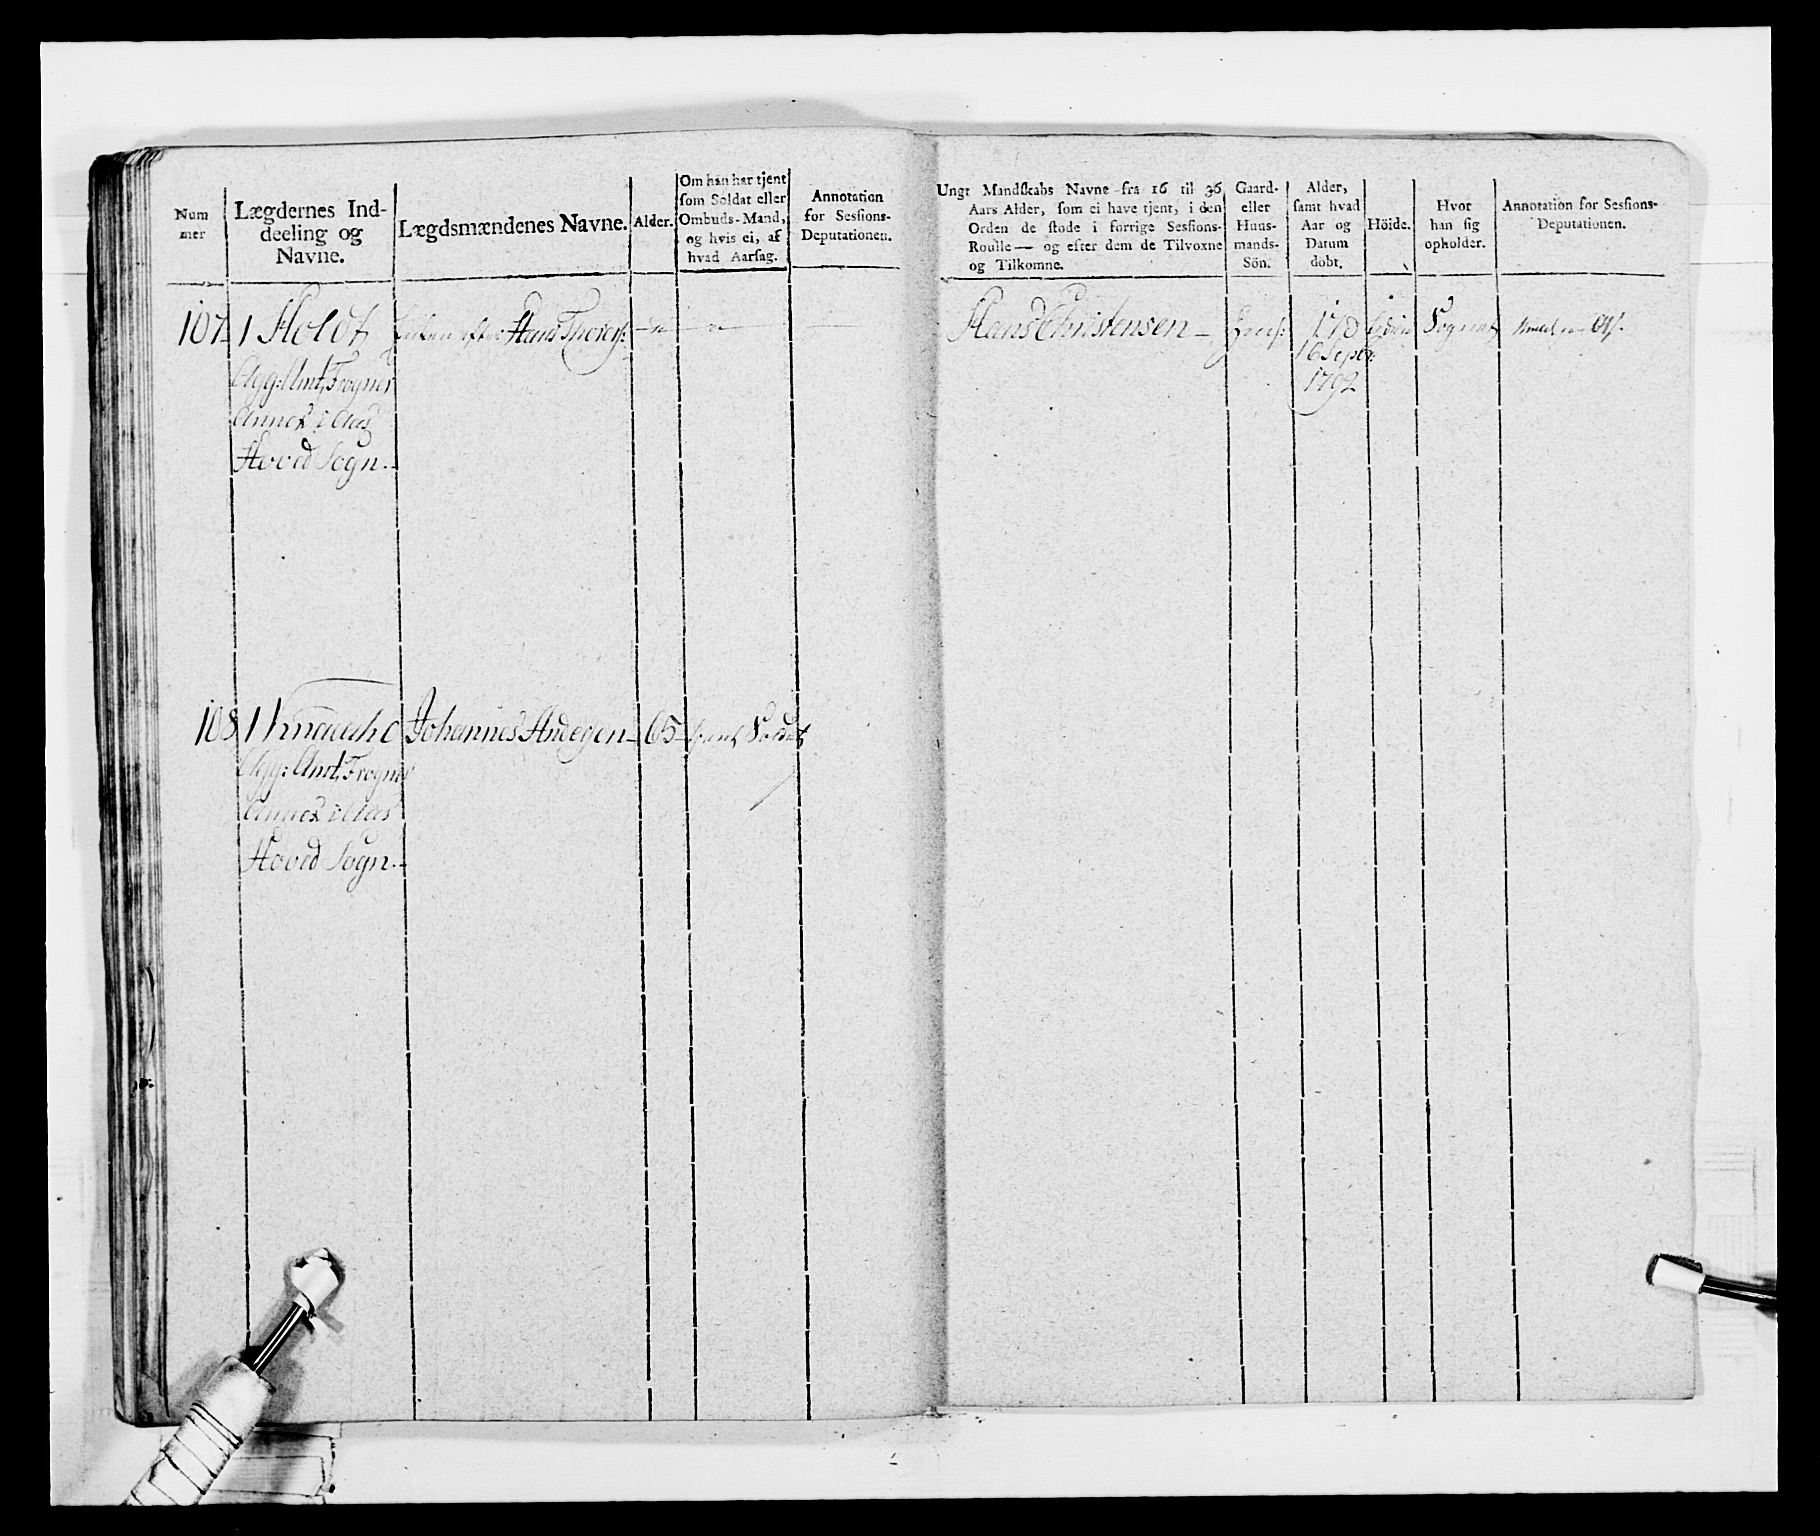 Num
mer
Lægdernes Ind-
deeling og
Navne.
Lægdsmændenes Navne.
Alder.
Om han har tjent
som Soldat eller
Ombuds-Mand,
og hvis ei, af
hvad Aarsag.
Annotation
for Sessions-
Deputationen.
Ungt Mandskabs Navne fra 16 til 36
Aars Alder, som ei have tjent, i den
Orden de stode i forrige Sessions-
Roulle — og efter dem de Tilvoxne
og Tilkomne.
Gaard-
eller
Huus-
mands-
Sön.
Alder,
samt hvad
Aar og
Datum
dobt.
Höide.
Hvor
han sig
opholder.
Annotation for Sessions-
Deputationen.
107 1 Holdt Enken efter Hans Thorers: — " — " —
Agg: Amt, Frogner
Annex i Aas
Hoved Sogn.
Hans Christensen — Huus:
16 Septbr:
1792
Sognet
108 1 Johannes Andersen 65 tjent Soldat
Agg: Amt, Frogner
Annex i Aas
Hoved Sogn.